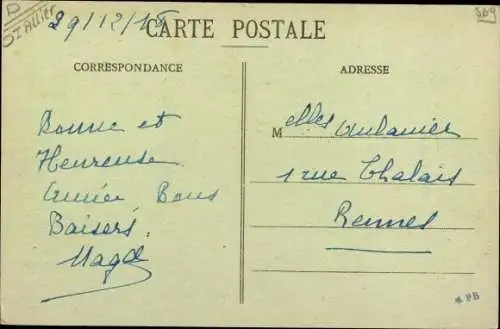 D
St Allier
29/12/15
CARTE POSTALE
509
CORRESPONDANCE
ADRESSE
Bonne et
Heureuse
Année, Bons
Baisers.
Magd
Melles Aulanier
1 rue Chalais
Rennes
PB